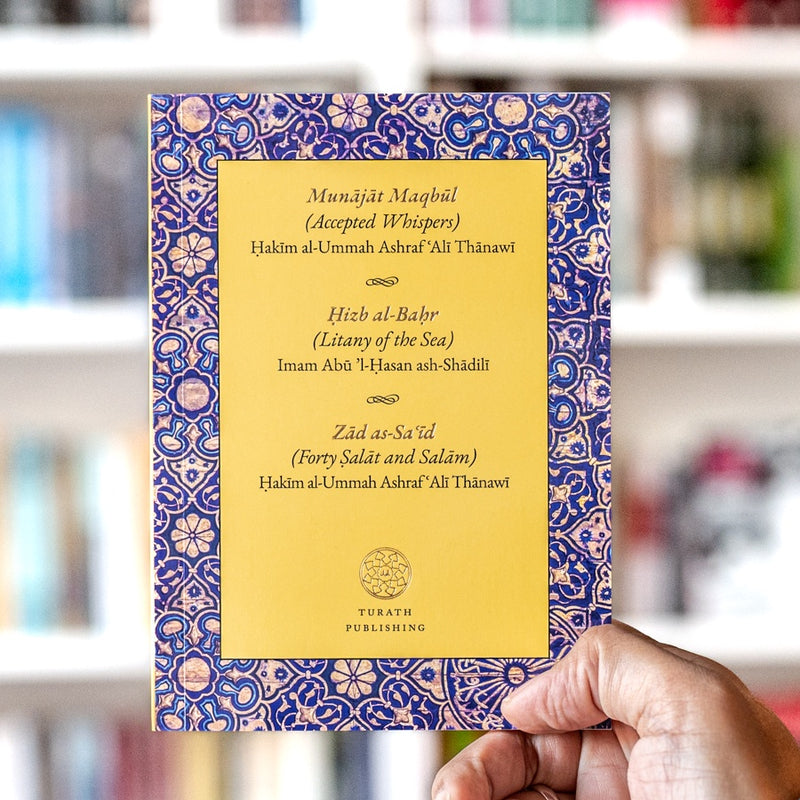 Munājāt Maqbūl
(Accepted Whispers)
Ḥakīm al-Ummah Ashraf ʿAlī Thānawī
Ḥizb al-Baḥr
(Litany of the Sea)
Imam Abū ’l-Ḥasan ash-Shādilī
Zād as-Saʿīd
(Forty Ṣalāt and Salām)
Ḥakīm al-Ummah Ashraf ʿAlī Thānawī
TURATH
PUBLISHING